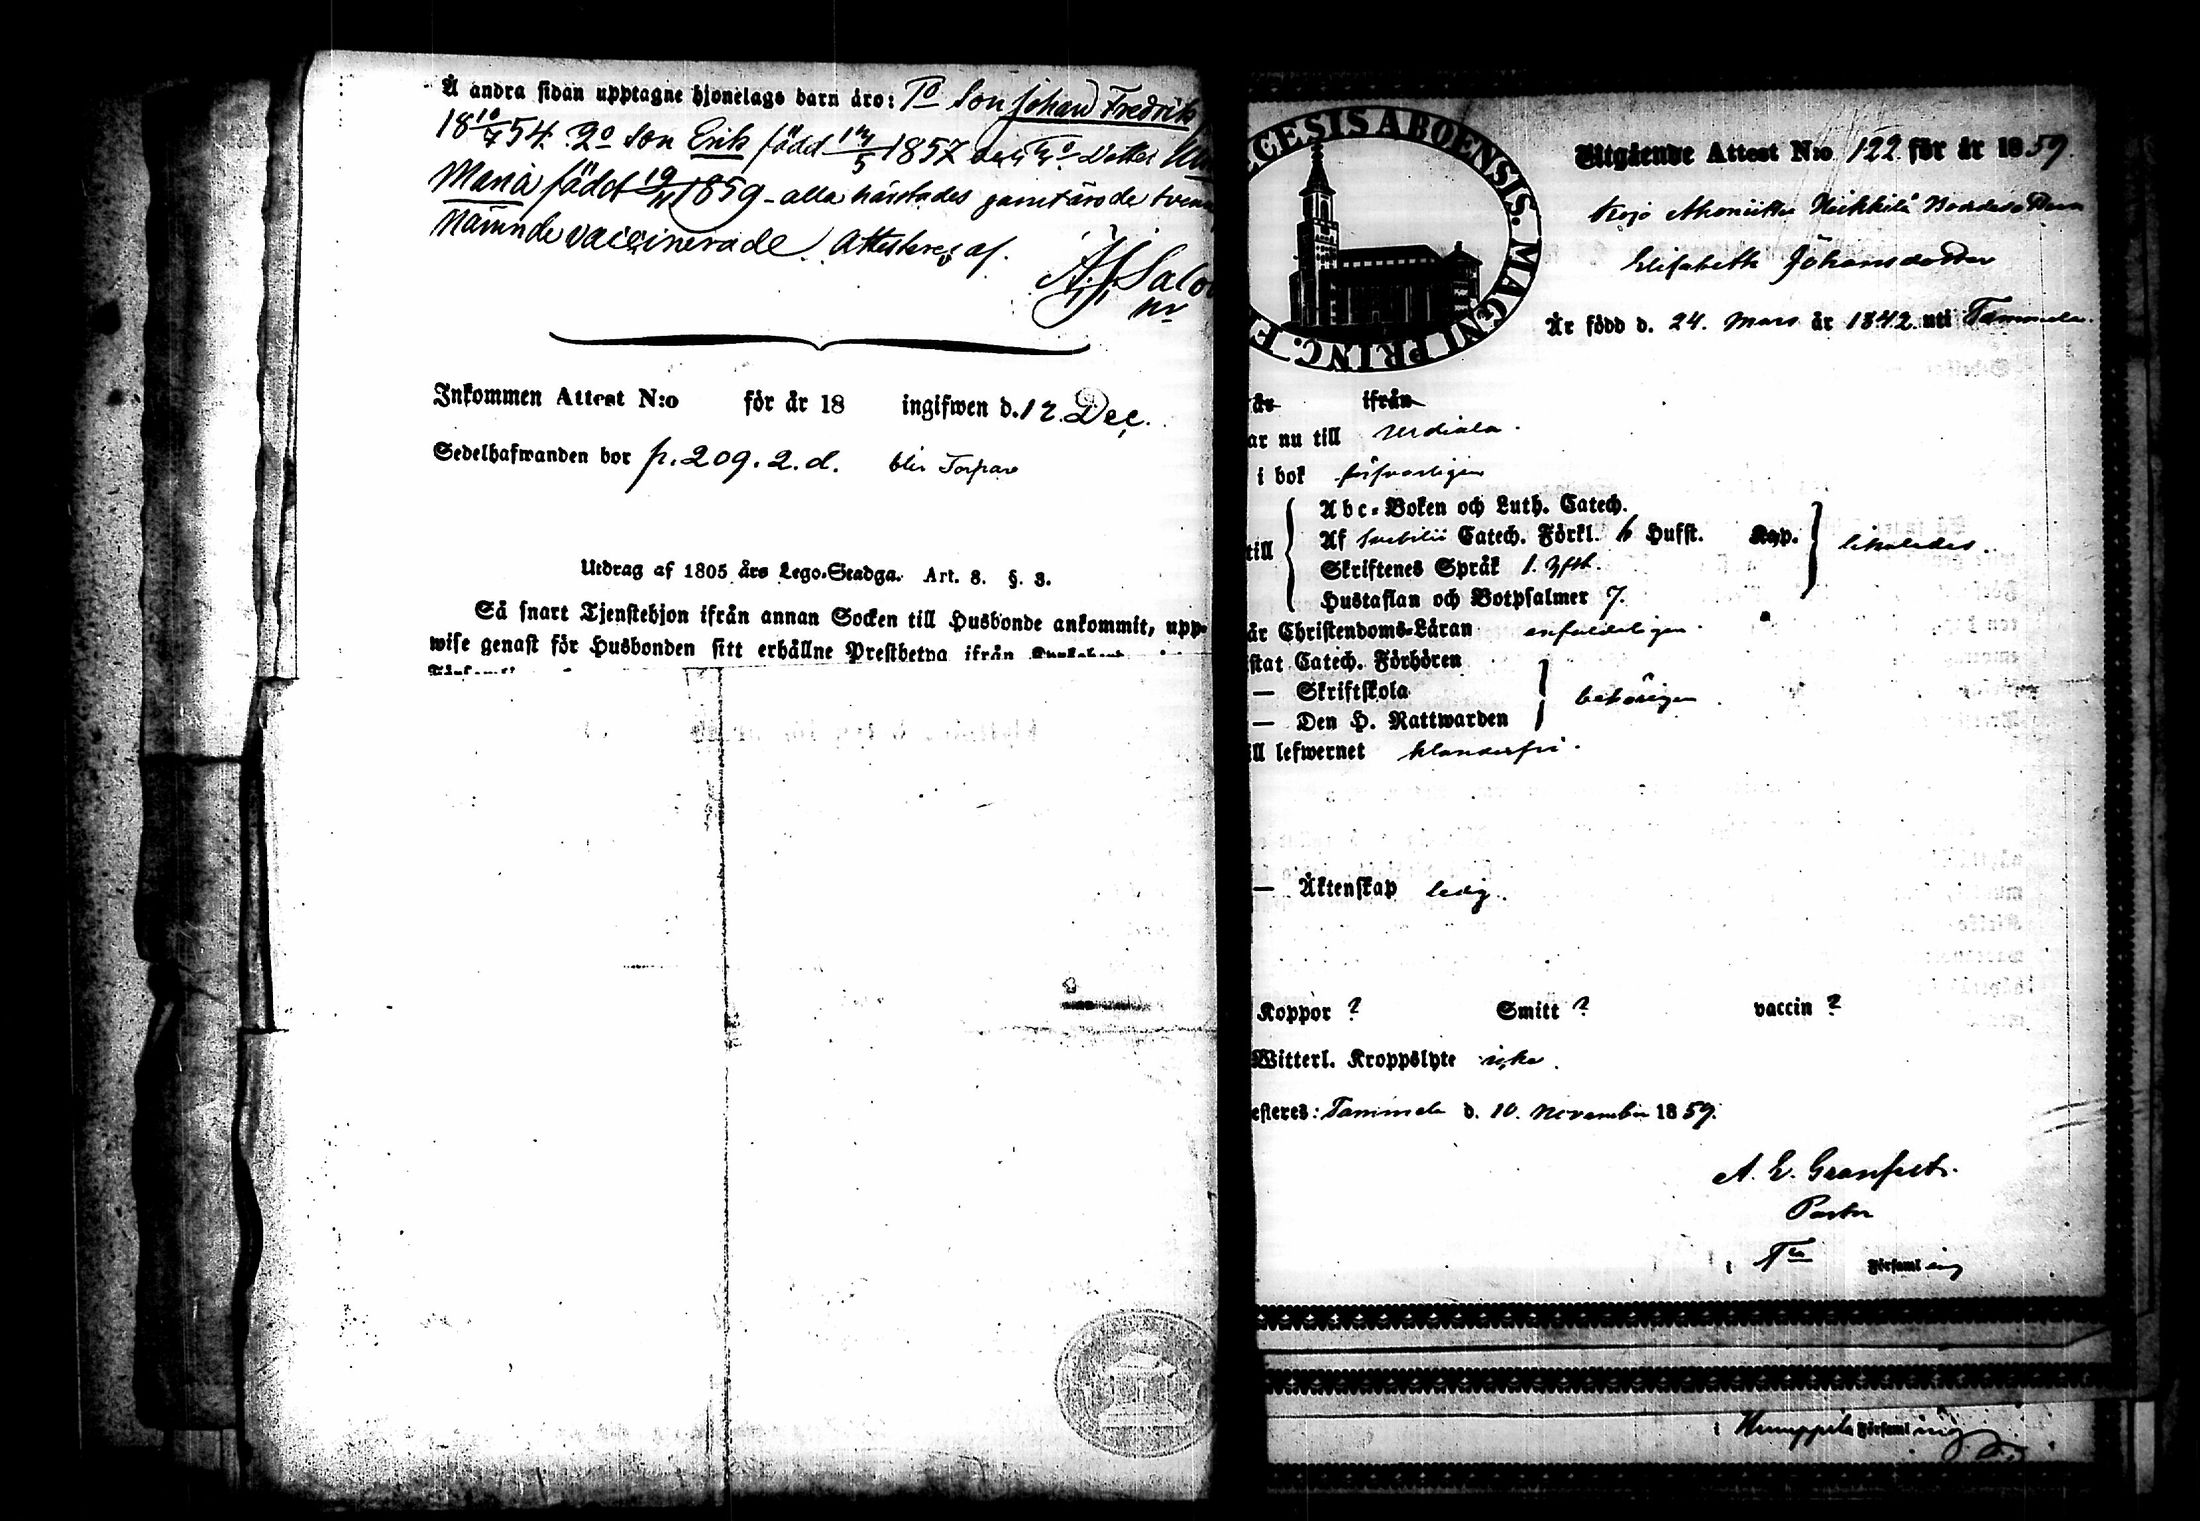 Å andra sidan upptagne hjonelags barn äro: 1o Son Johan Fredrik
18 10/7 54. 2o Son Erik född 1857 3o Dotter
Maria född 19/ 1859 - alla
vaccinerade. Attesteres af.
Inkommen Attest N:o för år 18 ingifwen d. 12. Dec.
Sedelhafwanden bor p. 209. 2. d. blir Torpare
Utdrag af 1805 års Lego-Stadga. Art. 8. §. 3.
Så snart Tjenstehjon ifrån annan Socken till Husbonde ankommit, upp-
wise genast för Husbonden sitt erhållne Prestbetyg ifrån
ECESIS ABOENSIS. MAGNI PRINC. F
Utgående Attest N:o 122 för år 1859
Heikkilä
Elisabeth Johansdotter
Är född d. 24. Mars år 1842 uti Tammela.
år ifrån
ar nu till Urdiala.
i bok försvarligen
till
Abc-Boken och Luth. Catech.
Af Svebilii Catech. Förkl. 6 Hufst. Kap. likaledes.
Skriftenes Språk
Hustaflan och Botpsalmer 7.
är Christendoms-Läran enfaldeligen.
stat Catech. Förhören
— Skriftskola behörigen.
— Den H. Nattwarden
ill lefwernet klanderfri.
— Äktenskap ledig.
Koppor ? Smitt ? vaccin ?
Witterl. Kroppslyte icke.
esteres: Tammela d. 10. November 1859.
A. E. Granfelt.
Pastor
i Församling
i Humppila Församling